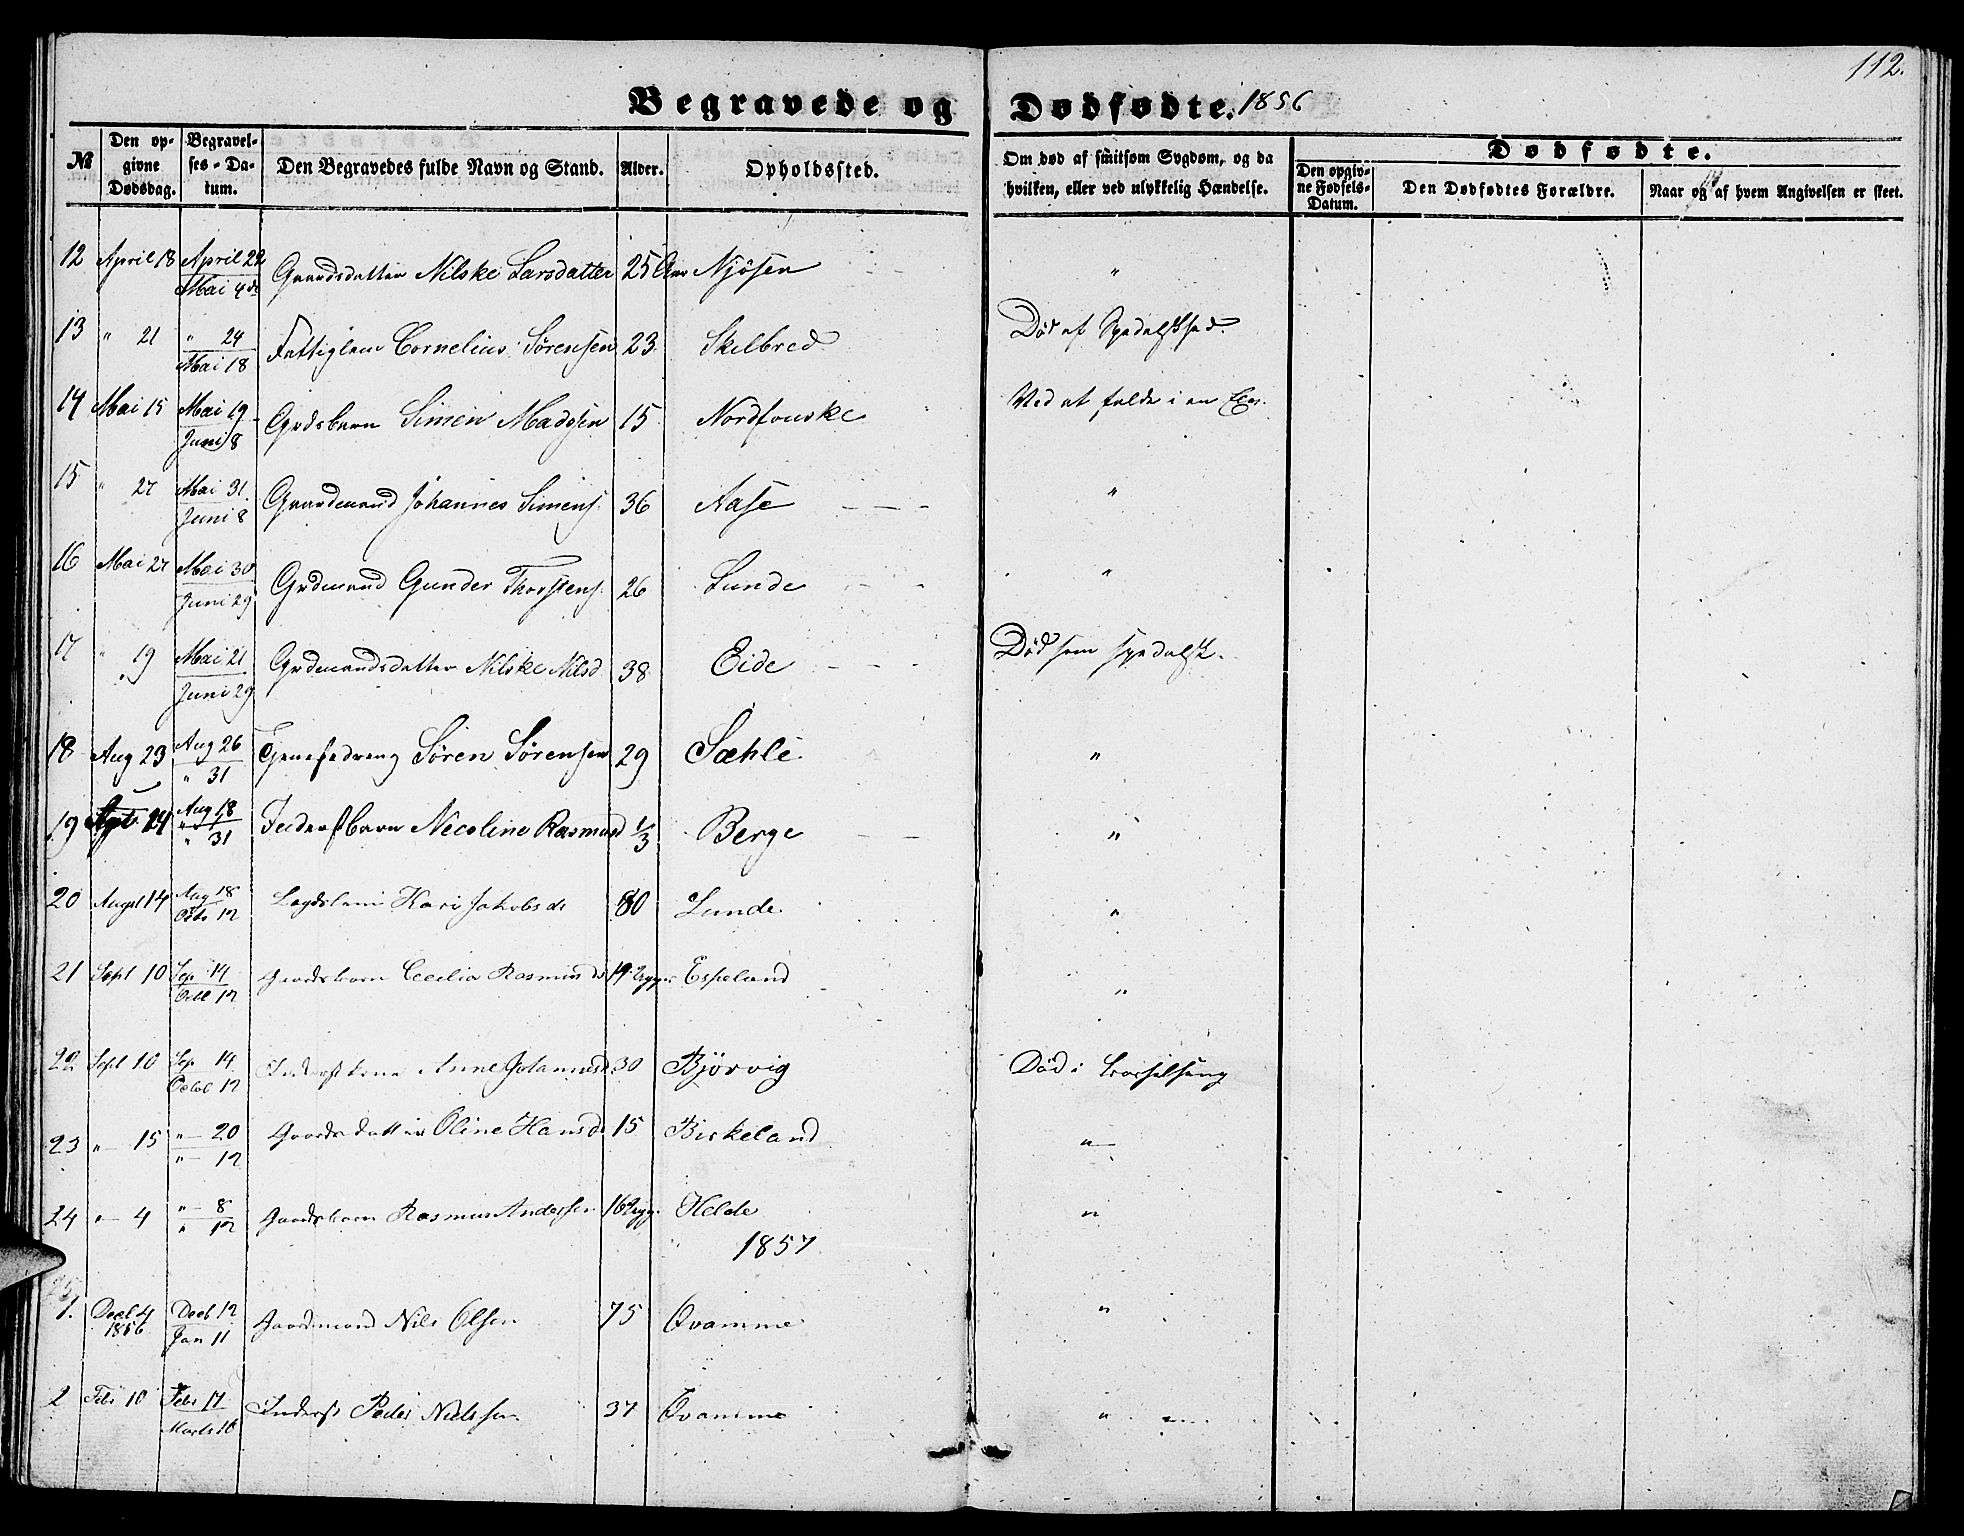 112.
Begravede og Dødfødte. 1856
№ Den opgivne Dødsdag. Begravelses-Datum. Den Begravedes fulde Navn og Stand. Alder. Opholdssted. Om død af smitsom Sygdom, og da hvilken, eller ved ulykkelig Hændelse. Dødfødte.
Den opgivne Fødsels-Datum. Den Dødfødtes Forældre. Naar og af hvem Angivelsen er skeet.
12 April 18 April 22 Mai 4de Gaardsdatter Nilske Larsdatter 25 Aar Njøsen "
13 " 21 " 24 Mai 18 Fattiglem Cornelius Sørensen 23 Skelbred Død af Spedalskhed.
14 Mai 15 Mai 19 Juni 8 Grdsbarn Simen Madssen 15 Nordfouske Ved at falde i en
15 " 27 Mai 31 Juni 8 Gaardmand Johannes Simens. 36 Aase "
16 Mai 27 Mai 30 Juni 29 Grdmand Gunder Thorstens. 26 Lunde "
17 " 19 Mai 21 Juni 29 Grdmandsdatter Nilske Nilsd 38 Eide Død som spedalsk.
18 Aug 23 Aug 26 " 31 Tjenestedreng Søren Sørensen 29 Sæhle "
19 14 Aug 18 " 31 Inderstbarn Necoline Rasmusd 1/3 Berge "
20 August 14 Aug 18 Octbr 12 Lægdslem Kari Jakobsdr 80 Lunde "
21 Sept 10 Sep 14 Octb 12 Gaardsbarn Cecilia Rasmusdr 14 Espeland "
22 Sept 10 Sep 14 Octob 12 Inderstkone Anne Johannesd 30 Bjørvig Død i Barselseng
23 " 15 " 20 " 12 Gaardsdatter Oline Hansd 15 Birkeland "
24 " 4 " 8 " 12 Gaardsbarn Rasmus Andersen 16 Helde "
1857
25
1. Decb 4 1856 Decb 12 Jan 11 Gaardmand Nils Olsen 75 Qvamme "
2 Febr 10 Febr 17 Marts 10 Inderst Peder Nielssen 37 Qvamme "